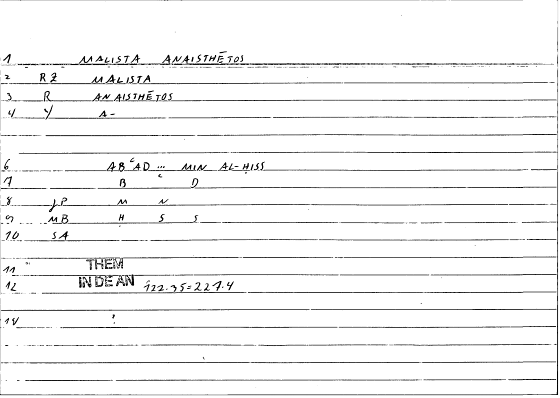 1 MALISTA ANAISTHĒTOS
2 RZ MALISTA
3 R ANAISTHĒTOS
4 Y A-
6 ABʿAD ... MIN AL-HISS
7 B ʿ D
8 JP M N
9 MB H S S
10 SA
11 THEM
12 IN DE AN 122.35=227.4
14 :